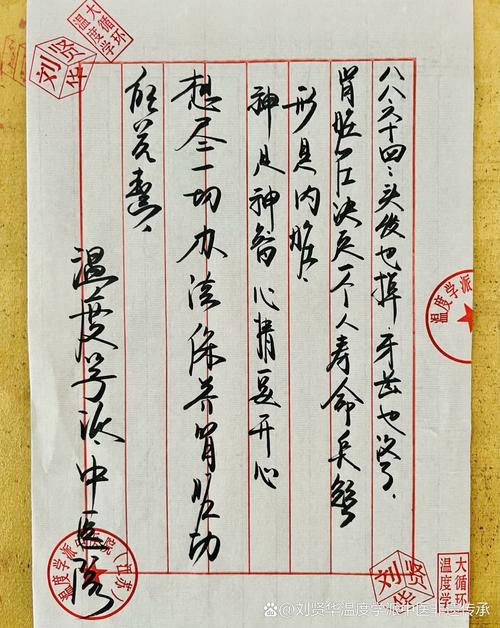 八八六十四：头发也掉，牙齿也没了，
肾脏 决定一个人寿命长
形是内脏，
神是神智心情要开心
想尽一切办法保养肾脏功
能
温度学派中医院
大循环
温度学
刘贤华
温度学派
刘贤华
大循环
温度学
温度学派中医
@刘贤华温度学派中医非遗传承